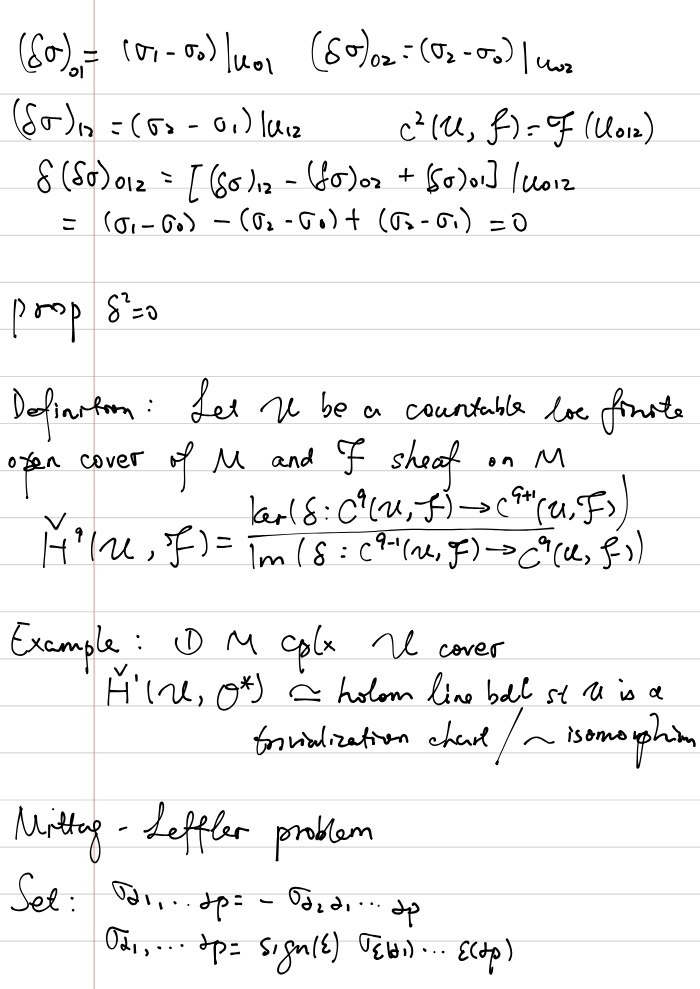 (δσ)₀₁ = (σ₁ - σ₀)|u₀₁   (δσ)₀₂ = (σ₂ - σ₀)|u₀₂
(δσ)₁₂ = (σ₂ - σ₁)|u₁₂   C²(U, F) = F(U₀₁₂)
δ(δσ)₀₁₂ = [(δσ)₁₂ - (δσ)₀₂ + (δσ)₀₁]|u₀₁₂
= (σ₁ - σ₀) - (σ₂ - σ₀) + (σ₂ - σ₁) = 0
prop δ² = 0
Definition: Let U be a countable loc finite
open cover of M and F sheaf on M
Ȟ^q(U, F) = ker(δ: C^q(U, F) → C^{q+1}(U, F)) / Im(δ: C^{q-1}(U, F) → C^q(U, F))
Example: ① M cplx U cover
Ȟ¹(U, O*) ≃ holom line bdl st U is a
trivialization chart / ~ isomorphism
Mittag - Leffler problem
Set: σα₁,...αp = - σα₂α₁...αp
σα₁,...αp = sign(ε) σε(α₁)...ε(αp)